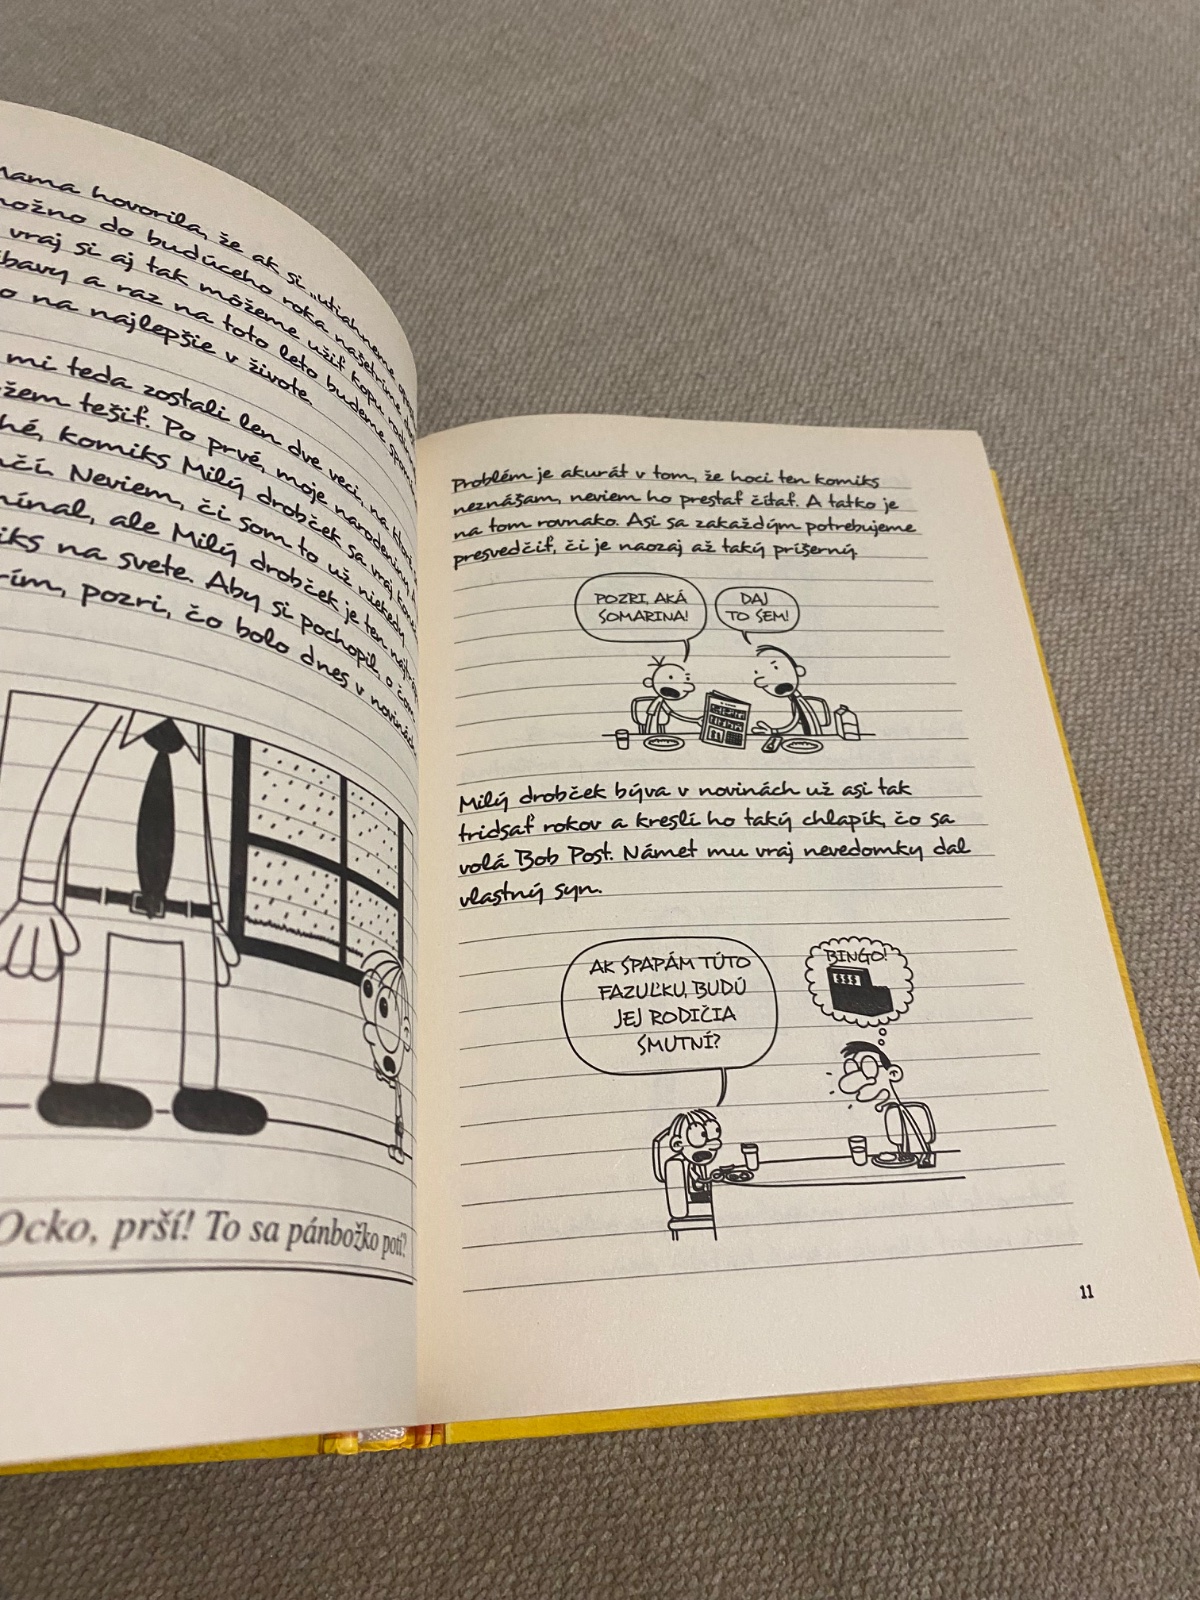 Mama hovorila, že ak si „utiahneme
možno do budúceho roka našetríme
vraj si aj tak môžeme užiť kopu
a raz na toto leto budeme
na najlepšie v živote.
mi teda zostali len dve veci, na
tešiť. Po prvé, moje narodeniny
komiks Milý drobček sa vraj
Neviem, či som to už niekedy
ale Milý drobček je ten
na svete. Aby si pochopil, o čom
pozri, čo bolo dnes v novinách
Ocko, prší! To sa pánbožko potí?
Problém je akurát v tom, že hoci ten komiks
neznášam, neviem ho prestať čítať. A tatko je
na tom rovnako. Asi sa zakaždým potrebujeme
presvedčiť, či je naozaj až taký príšerný.
POZRI, AKÁ
SOMARINA!
DAJ
TO SEM!
Milý drobček býva v novinách už asi tak
tridsať rokov a kreslí ho taký chlapík, čo sa
volá Bob Post. Námet mu vraj nevedomky dal
vlastný syn.
AK SPAPÁM TÚTO
FAZUĽKU, BUDÚ
JEJ RODIČIA
SMUTNÍ?
BINGO!
$$$
11